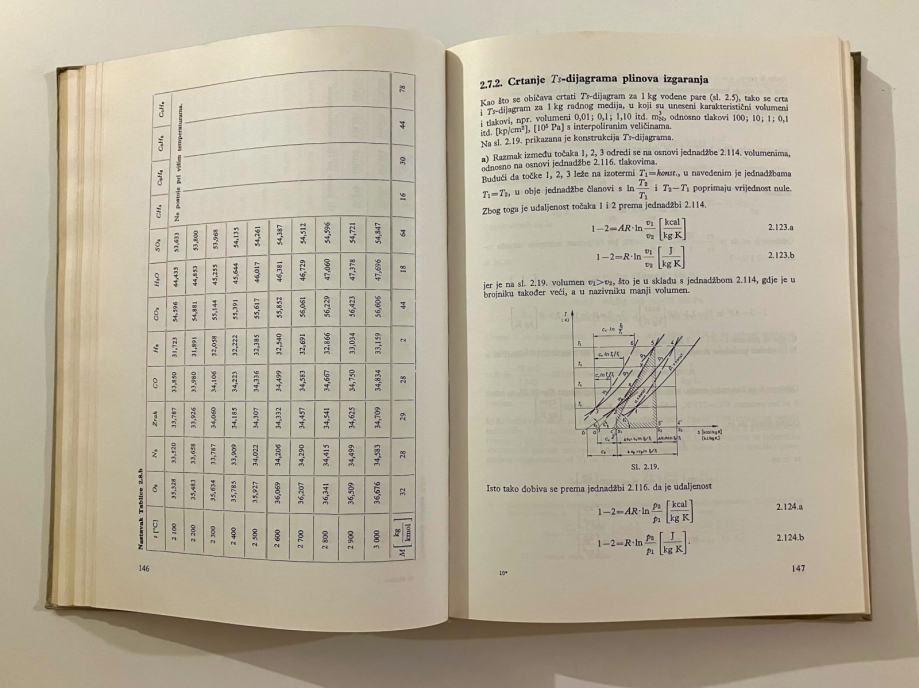 Nastavak Tablice 2.8.b
t [°C] O₂ N₂ Zrak CO H₂ CO₂ H₂O SO₂ CH₄ C₂H₄ C₃H₈ C₆H₆
2 100 35,328 33,520 33,787 33,850 31,723 54,596 44,435 53,633 Ne postoje pri višim temperaturama.
2 200 35,483 33,658 33,926 33,980 31,891 54,881 44,853 53,800
2 300 35,634 33,787 34,060 34,106 32,058 55,144 45,255 53,968
2 400 35,785 33,909 34,185 34,223 32,222 55,391 45,644 54,135
2 500 35,927 34,022 34,307 34,336 32,385 55,617 46,017 54,261
2 600 36,069 34,206 34,332 34,499 32,540 55,852 46,381 54,387
2 700 36,207 34,290 34,457 34,583 32,691 56,061 46,729 54,512
2 800 36,341 34,415 34,541 34,667 32,866 56,229 47,060 54,596
2 900 36,509 34,499 34,625 34,750 33,034 56,423 47,378 54,721
3 000 36,676 34,583 34,709 34,834 33,159 56,606 47,696 54,847
M [kg/kmol] 32 28 29 28 2 44 18 64 16 30 44 78
146
2.7.2. Crtanje Ts-dijagrama plinova izgaranja
Kao što se običava crtati Ts-dijagram za 1 kg vodene pare (sl. 2.5), tako se crta
i Ts-dijagram za 1 kg radnog medija, u koji su uneseni karakteristični volumeni
i tlakovi, npr. volumeni 0,01; 0,1; 1,10 itd. m³, odnosno tlakovi 100; 10; 1; 0,1
itd. [kp/cm²], [10⁵ Pa] s interpoliranim veličinama.
Na sl. 2.19. prikazana je konstrukcija Ts-dijagrama.
a) Razmak između točaka 1, 2, 3 odredi se na osnovi jednadžbe 2.114. volumenima,
odnosno na osnovi jednadžbe 2.116. tlakovima.
Budući da točke 1, 2, 3 leže na izotermi T₁=konst., u navedenim je jednadžbama
T₁=T₂, u obje jednadžbe članovi s ln T₂/T₁ i T₂−T₁ poprimaju vrijednost nule.
Zbog toga je udaljenost točaka 1 i 2 prema jednadžbi 2.114.
1−2=AR·ln v₁/v₂ [kcal/kg K] 2.123.a
1−2=R·ln v₁/v₂ [J/kg K] 2.123.b
jer je na sl. 2.19. volumen v₁>v₂, što je u skladu s jednadžbom 2.114, gdje je u
brojniku također veći, a u nazivniku manji volumen.
Sl. 2.19.
Isto tako dobiva se prema jednadžbi 2.116. da je udaljenost
1−2=AR·ln p₂/p₁ [kcal/kg K] 2.124.a
1−2=R·ln p₂/p₁ [J/kg K]. 2.124.b
10*
147